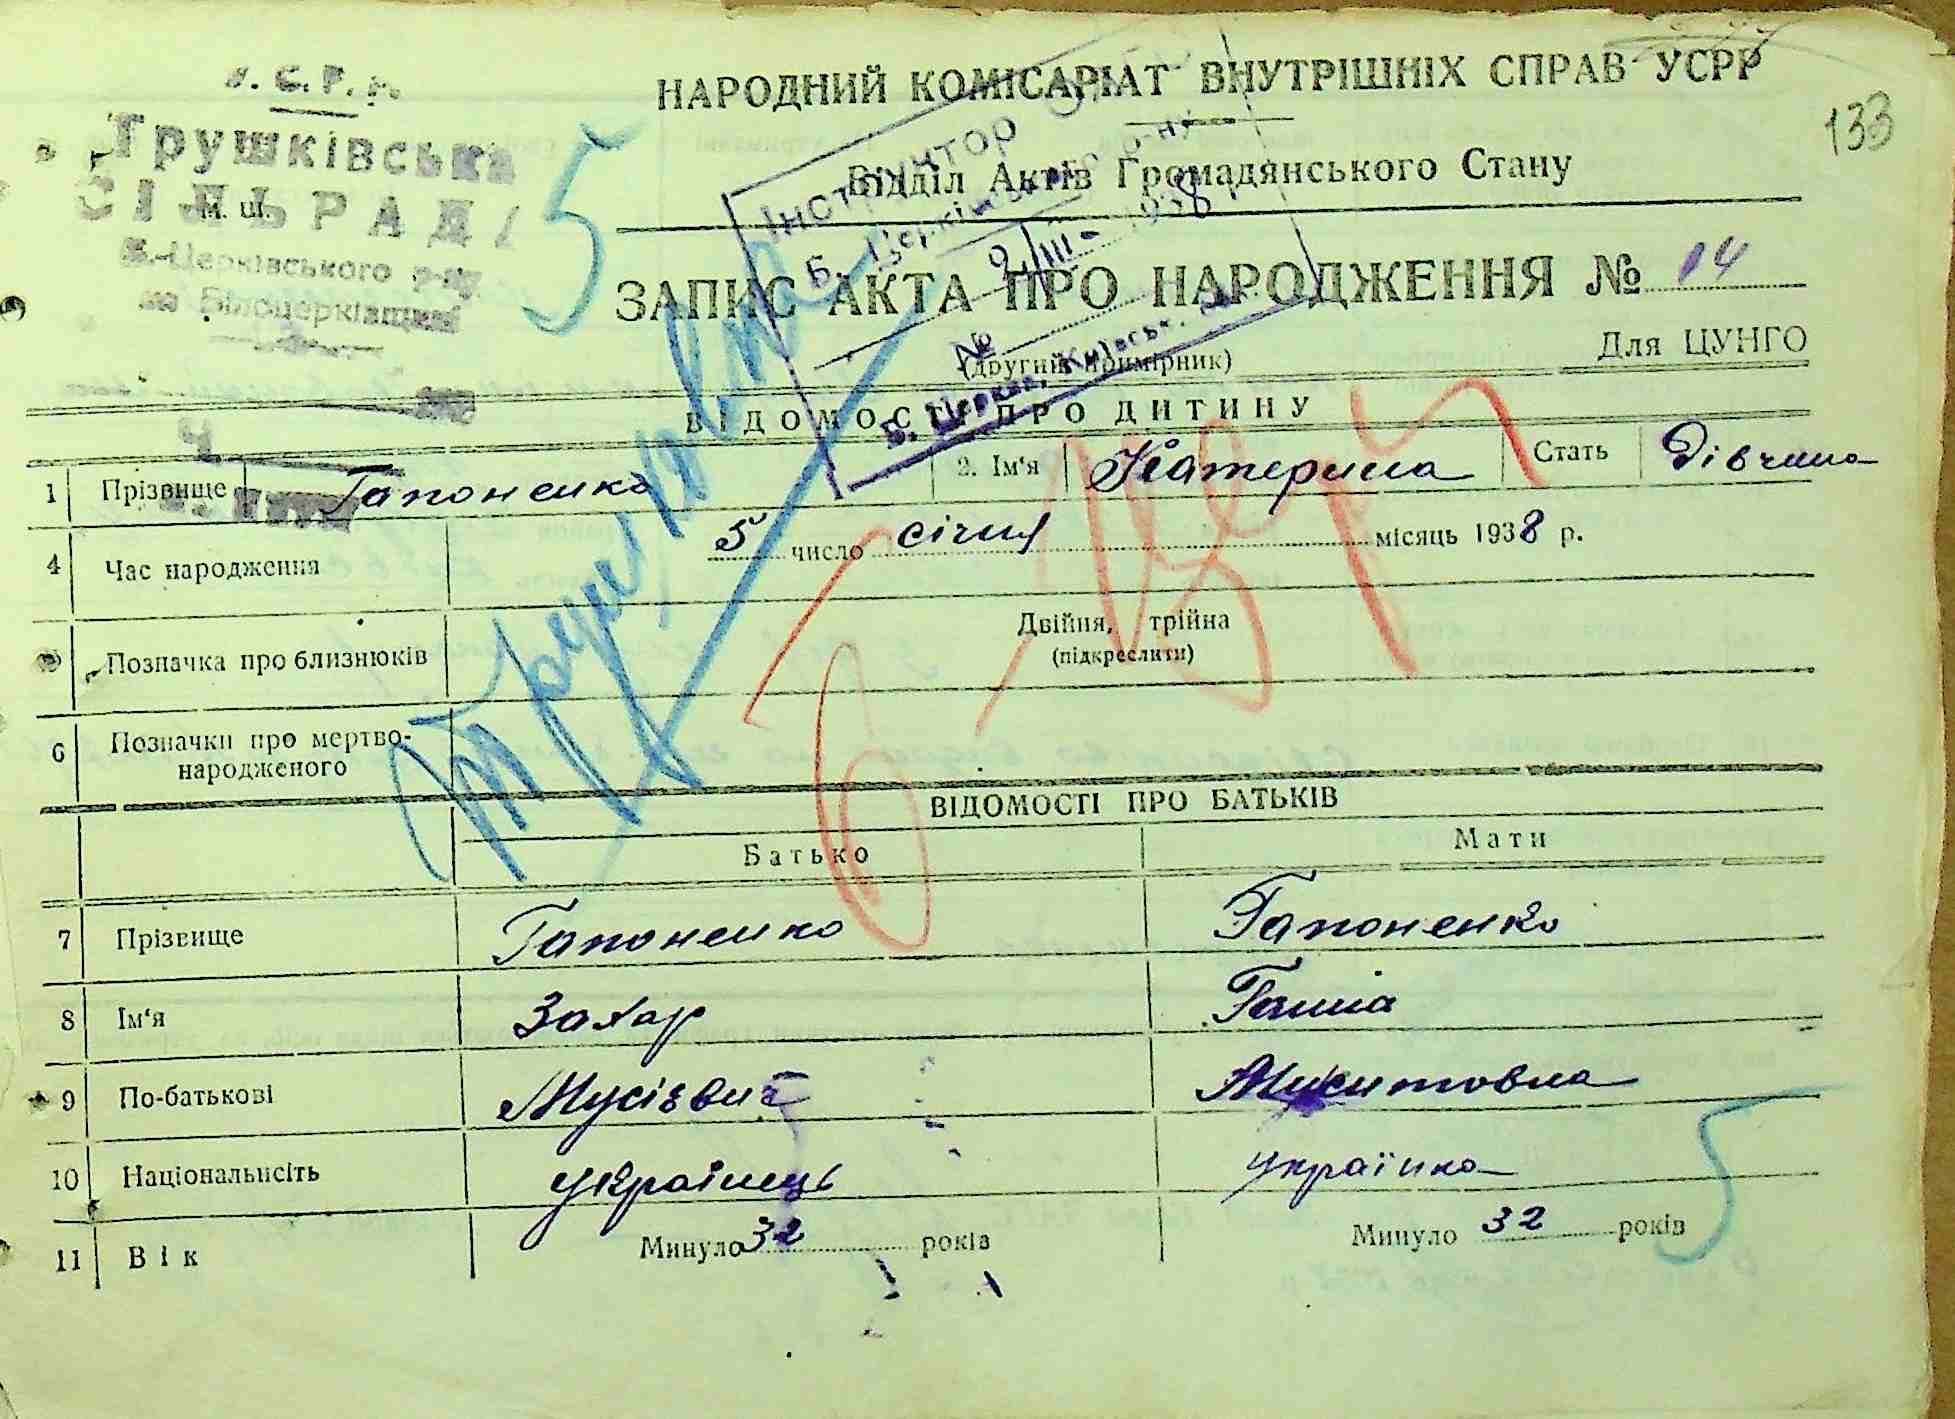 Трушківська
СІЛЬРАДА
М. Ш.
Б.-Церківського р-ну
на Білоцерківщині
НАРОДНИЙ КОМІСАРІАТ ВНУТРІШНІХ СПРАВ УСРР
133
Відділ Актів Громадянського Стану
5
Інструктор
Б. Церківського р-ну
9/III 1938 р.
№
Б. Церква, Київськ.
ЗАПИС АКТА ПРО НАРОДЖЕННЯ № 14
(другий примірник)
Для ЦУНГО
ВІДОМОСТІ ПРО ДИТИНУ
1 Прізвище Гапоненко 2. Ім‘я Катерина Стать Дівчина
4 Час народження 5 число січня місяць 1938 р.
5 Позначка про близнюків Двійня, трійна
(підкреслити)
6 Позначки про мертво-
народженого
ВІДОМОСТІ ПРО БАТЬКІВ
Батько Мати
7 Прізвище Гапоненко Гапоненко
8 Ім‘я Захар Ганна
9 По-батькові Мусієвич Микитовна
10 Національнсіть українець українка
5
11 Вік Минуло 32 років Минуло 32 років